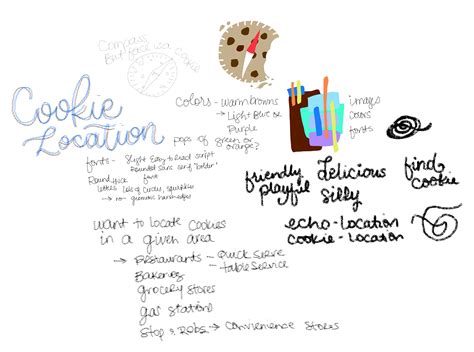 Compass
But face is a Cookie
Cookie
Location
colors - warm browns
→ Light Blue or
Purple
pops of green or
orange?
images
colors
fonts
fonts - slight Easy to Read script
Rounded sans serif "bolder"
Round thick font
letters lots of circles, squiggles
→ no hard edges
friendly
playful
Delicious
Silly
find
cookie
echo-location
cookie-location
want to locate cookies
in a given area
→ Restaurants - Quick Serve
- table Service
Bakeries
grocery stores
gas stations
Stop & Robs → Convenience Stores